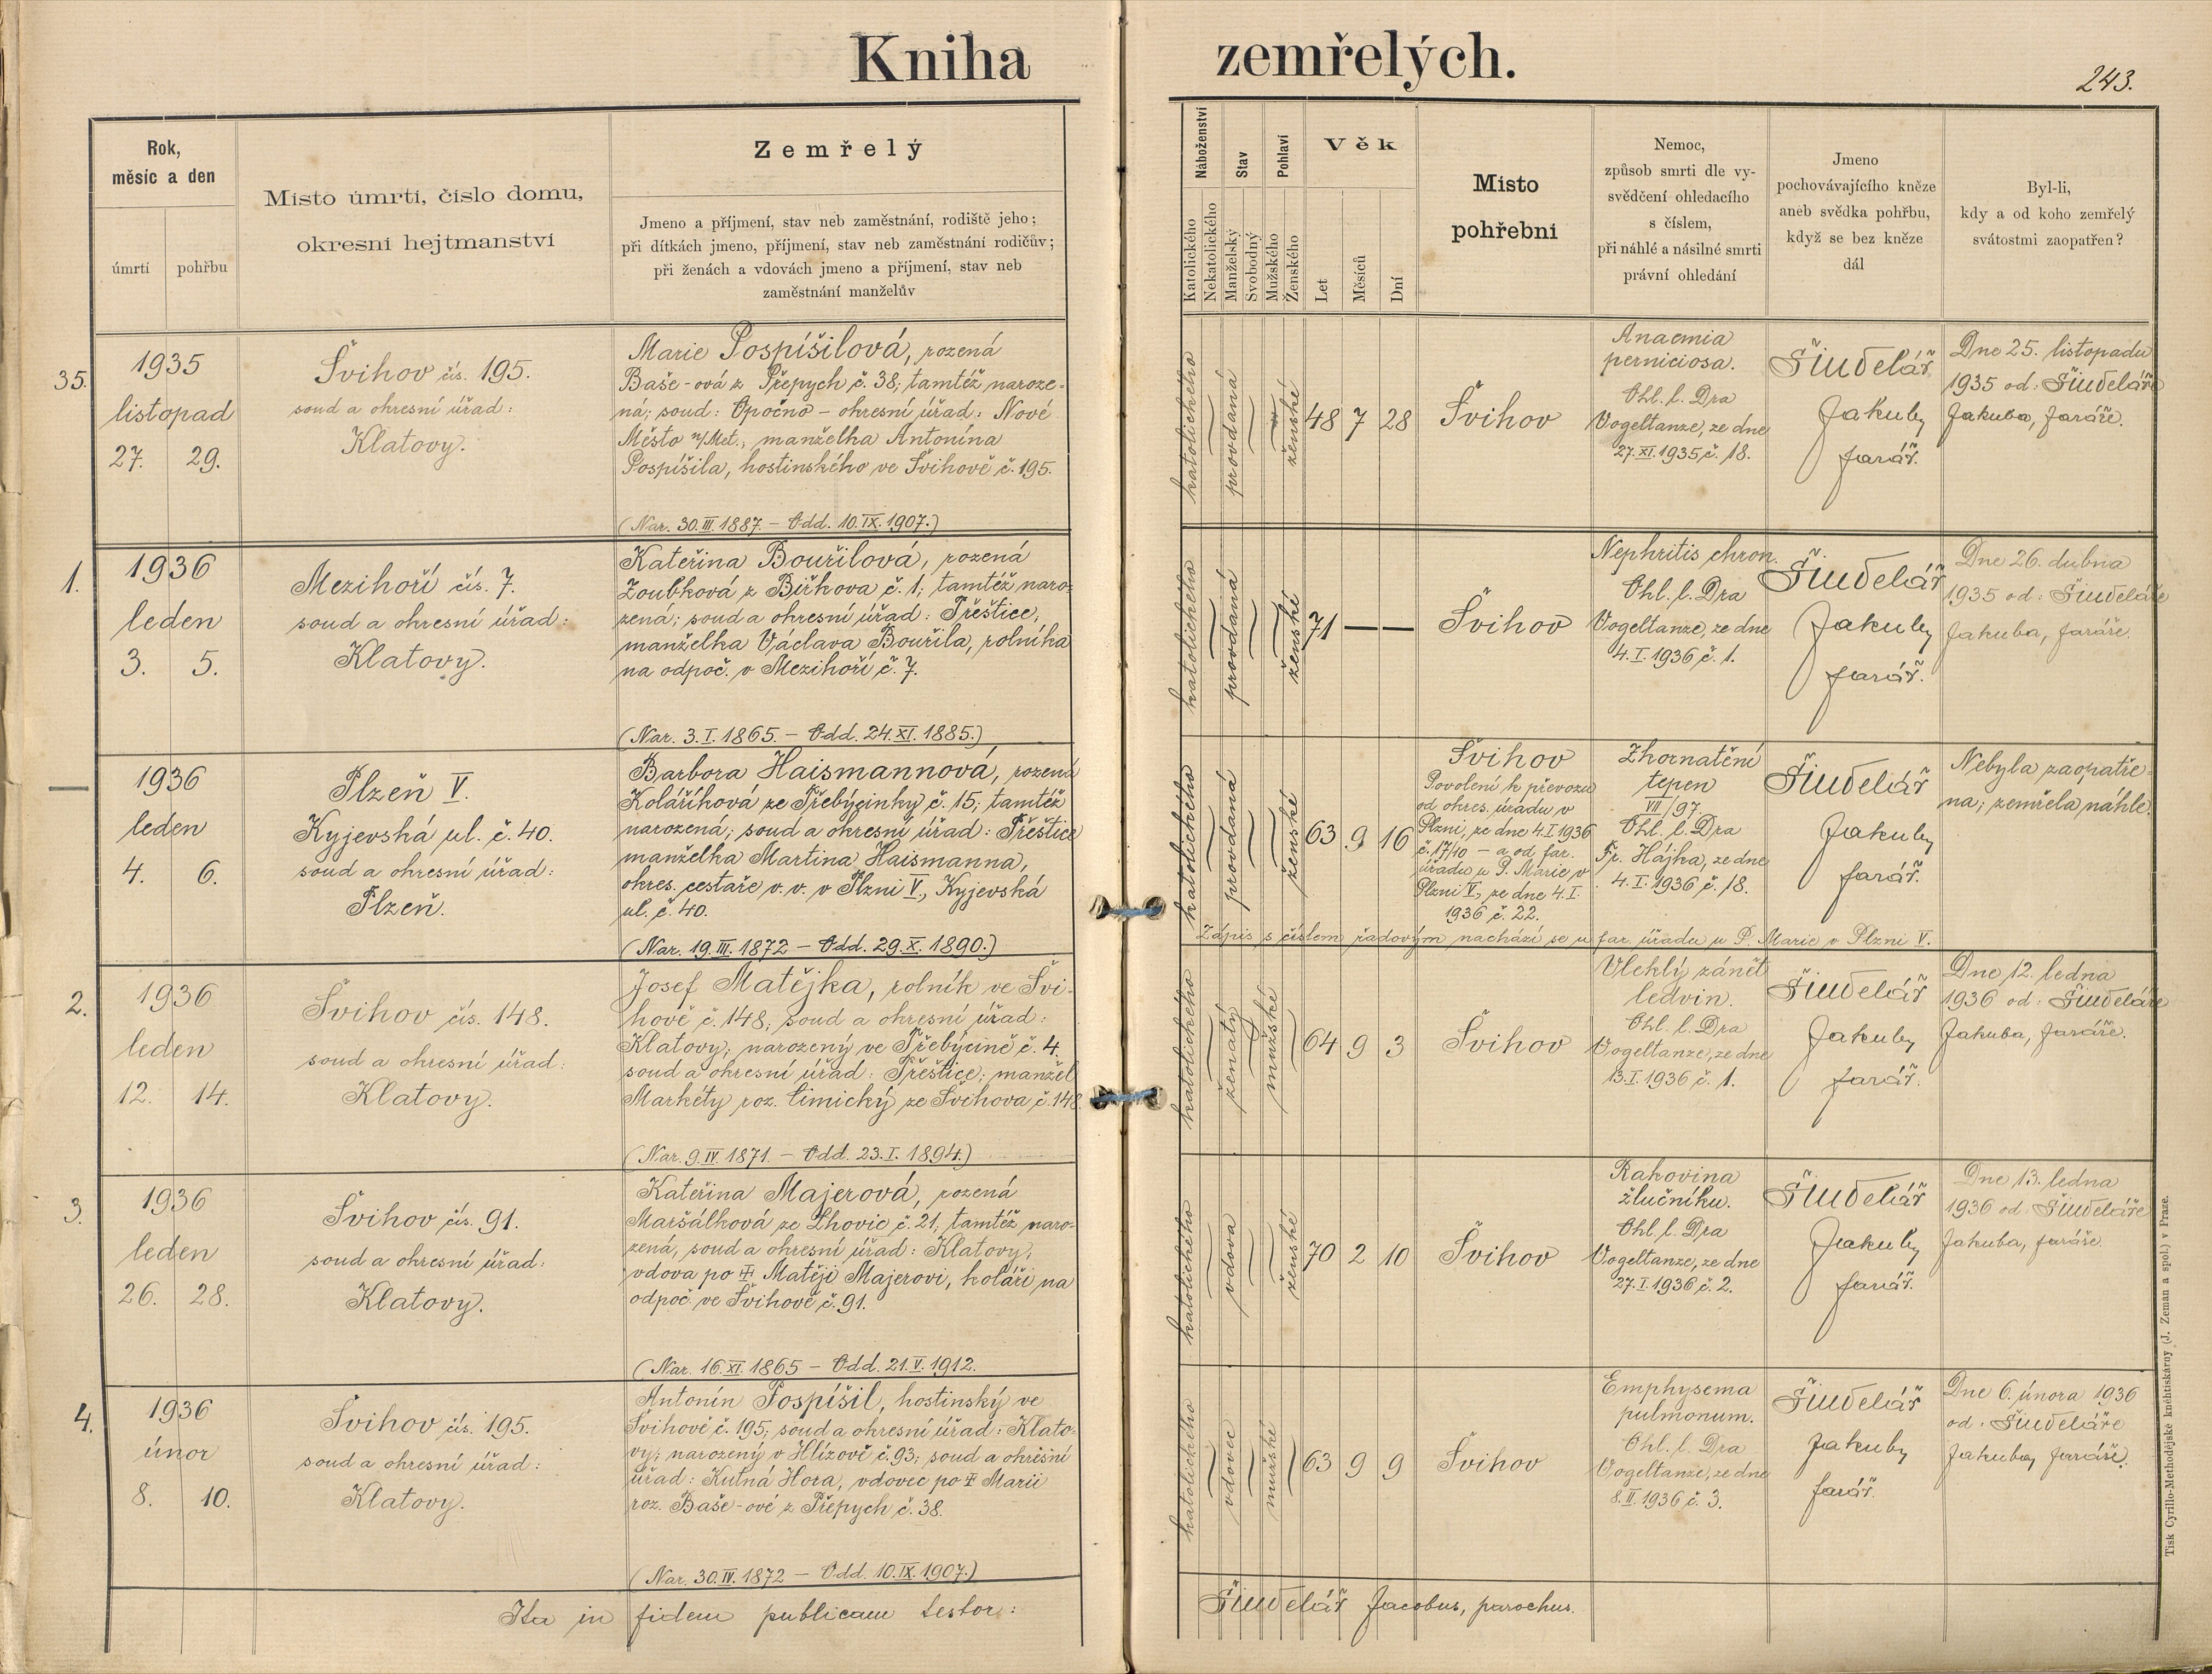 Kniha zemřelých.
243.
Rok,
měsíc a den
úmrtí
pohřbu
Místo úmrtí, číslo domu,
okresní hejtmanství
Zemřelý
Jmeno a příjmení, stav neb zaměstnání, rodiště jeho;
při dítkách jmeno, příjmení, stav neb zaměstnání rodičův;
při ženách a vdovách jmeno a příjmení, stav neb
zaměstnání manželův
Náboženství
Katolického
Nekatolického
Stav
Manželský
Svobodný
Pohlaví
Mužského
Ženského
Věk
Let
Měsíců
Dní
Místo
pohřební
Nemoc,
způsob smrti dle vy-
svědčení ohledacího
s číslem,
při náhlé a násilné smrti
právní ohledání
Jmeno
pochovávajícího kněze
aneb svědka pohřbu,
když se bez kněze
dál
Byl-li,
kdy a od koho zemřelý
svátostmi zaopatřen?
35.
1935
listopad
27. 29.
Švihov čís. 195.
soud a okresní úřad:
Klatovy.
Marie Pospíšilová, rozená
Baše-ová z Přepych č. 38; tamtéž naroze-
ná; soud: Opočno – okresní úřad: Nové
Město n/Met., manželka Antonína
Pospíšila, hostinského ve Švihově č. 195.
(Nar. 30.III.1887. – Odd. 10.IX.1907.)
katolického
provdaná
ženské
48 7 28
Švihov
Anaemia
perniciosa.
Ohl. l. Dra
Vogeltanze, ze dne
27.XI.1935 č. 18.
Šindelář
Jakub,
farář.
Dne 25. listopadu
1935 od: Šindeláře
Jakuba, faráře.
1.
1936
leden
3. 5.
Mezihoří čís. 7.
soud a okresní úřad:
Klatovy.
Kateřina Bouřilová, rozená
Zoubková z Biřkova č. 1; tamtéž naro-
zená; soud a okresní úřad: Přeštice;
manželka Václava Bouřila, rolníka
na odpoč. v Mezihoří č. 7.
(Nar. 3.I.1865. – Odd. 24.XI.1885.)
katolického
provdaná
ženské
71 — —
Švihov
Nephritis chron.
Ohl. l. Dra
Vogeltanze, ze dne
4.I.1936 č. 1.
Šindelář
Jakub,
farář.
Dne 26. dubna
1935 od: Šindeláře
Jakuba, faráře.
—
1936
leden
4. 6.
Plzeň V.
Kyjevská ul. č. 40.
soud a okresní úřad:
Plzeň.
Barbora Haismannová, rozená
Kolaříková ze Třebýcinky č. 15; tamtéž
narozená; soud a okresní úřad: Přeštice
manželka Martina Haismanna,
okres. cestaře v. v. v Plzni V., Kyjevská
ul. č. 40.
(Nar. 19.III.1872 – Odd. 29.X.1890.)
katolického
provdaná
ženské
63 9 16
Švihov
Povolení k převozu
od okres. úřadu v
Plzni, ze dne 4.I.1936
č. 17/10 – a od far.
úřadu u P. Marie v
Plzni V., ze dne 4.I.
1936 č. 22.
Zkornatění
tepen
VII/97
Ohl. l. Dra
Fr. Hájka, ze dne
4.I.1936 č. 18.
Šindelář
Jakub,
farář.
Nebyla zaopatře-
na; zemřela náhle.
Zápis s číslem řadovým nachází se u far. úřadu u P. Marie v Plzni V.
2.
1936
leden
12. 14.
Švihov čís. 148.
soud a okresní úřad:
Klatovy.
Josef Matějka, rolník ve Švi-
hově č. 148; soud a okresní úřad:
Klatovy; narozený ve Třebýcině č. 4.
soud a okresní úřad: Přeštice; manžel
Markéty roz. Cimický ze Švihova č. 148.
(Nar. 9.IV.1871. – Odd. 23.I.1894.)
katolického
ženatý
mužské
64 9 3
Švihov
Vleklý zánět
ledvin.
Ohl. l. Dra
Vogeltanze, ze dne
13.I.1936 č. 1.
Šindelář
Jakub,
farář.
Dne 12. ledna
1936 od: Šindeláře
Jakuba, faráře.
3.
1936
leden
26. 28.
Švihov čís. 91.
soud a okresní úřad:
Klatovy.
Kateřina Majerová, rozená
Maršálková ze Lhovic č. 21; tamtéž naro-
zená, soud a okresní úřad: Klatovy;
vdova po † Matěji Majerovi, koláři na
odpoč. ve Švihově č. 91.
(Nar. 16.XI.1865 – Odd. 21.V.1912.
katolického
vdova
ženské
70 2 10
Švihov
Rakovina
žlučníku.
Ohl. l. Dra
Vogeltanze, ze dne
27.I.1936 č. 2.
Šindelář
Jakub,
farář.
Dne 13. ledna
1936 od: Šindeláře
Jakuba, faráře.
4.
1936
únor
8. 10.
Švihov čís. 195.
soud a okresní úřad:
Klatovy.
Antonín Pospíšil, hostinský ve
Švihově č. 195; soud a okresní úřad: Klato-
vy; narozený v Hlízově č. 93; soud a okresní
úřad: Kutná Hora, vdovec po † Marii
roz. Baše-ové z Přepych č. 38.
(Nar. 30.IV.1872 – Odd. 10.IX.1907.)
katolického
vdovec
mužské
63 9 9
Švihov
Emphysema
pulmonum.
Ohl. l. Dra
Vogeltanze, ze dne
8.II.1936 č. 3.
Šindelář
Jakub,
farář.
Dne 6. února 1936
od: Šindeláře
Jakuba, faráře.
Ita in fidem publicam testor: Šindelář Jacobus, parochus.
Tisk Cyrillo-Methodějské knihtiskárny (J. Zeman a spol.) v Praze.